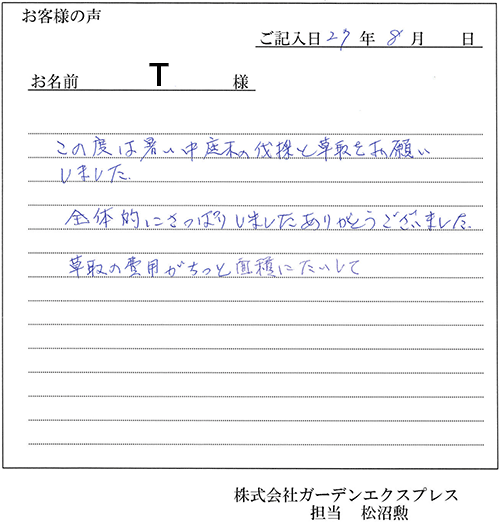 お客様の声
ご記入日 27 年 8 月 日
お名前 T 様
この度は暑い中庭木の伐採と草取をお願い
しました.
全体的にさっぱりしましたありがとうございました.
草取の費用がちっと面積にたいして
株式会社ガーデンエクスプレス
担当 松沼勲